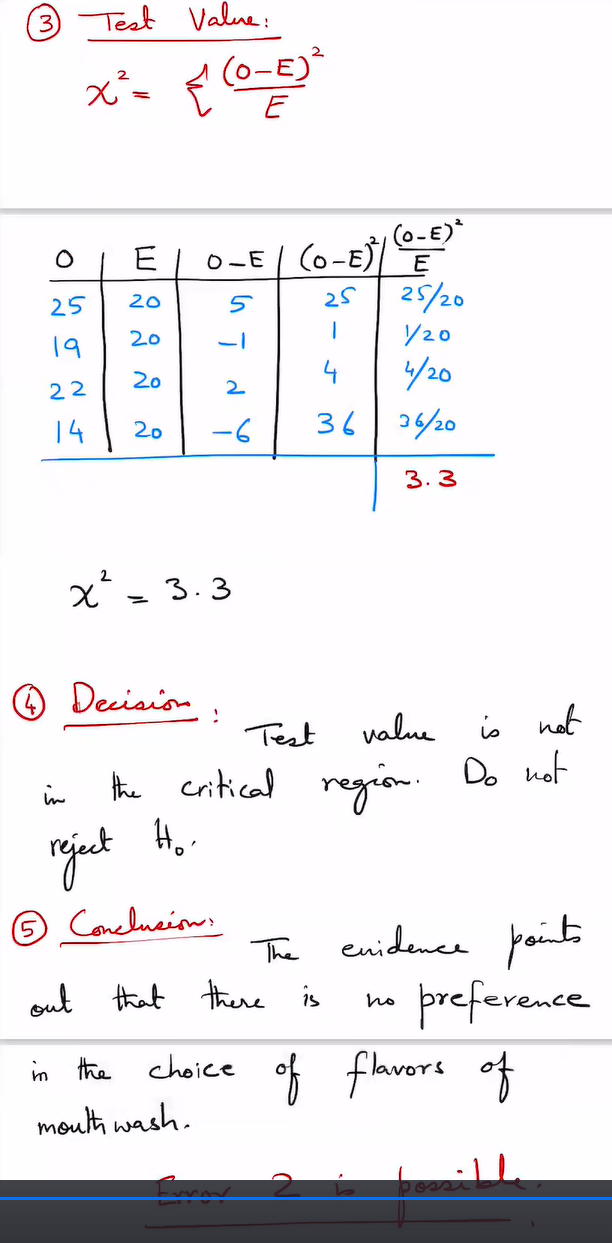 ③ Test Value:
χ² = Σ (O-E)²/E
O | E | O-E | (O-E)² | (O-E)²/E
25 | 20 | 5 | 25 | 25/20
19 | 20 | -1 | 1 | 1/20
22 | 20 | 2 | 4 | 4/20
14 | 20 | -6 | 36 | 36/20
3.3
χ² = 3.3
④ Decision: Test value is not
in the critical region. Do not
reject H₀.
⑤ Conclusion: The evidence points
out that there is no preference
in the choice of flavors of
mouth wash.
Error 2 is possible.